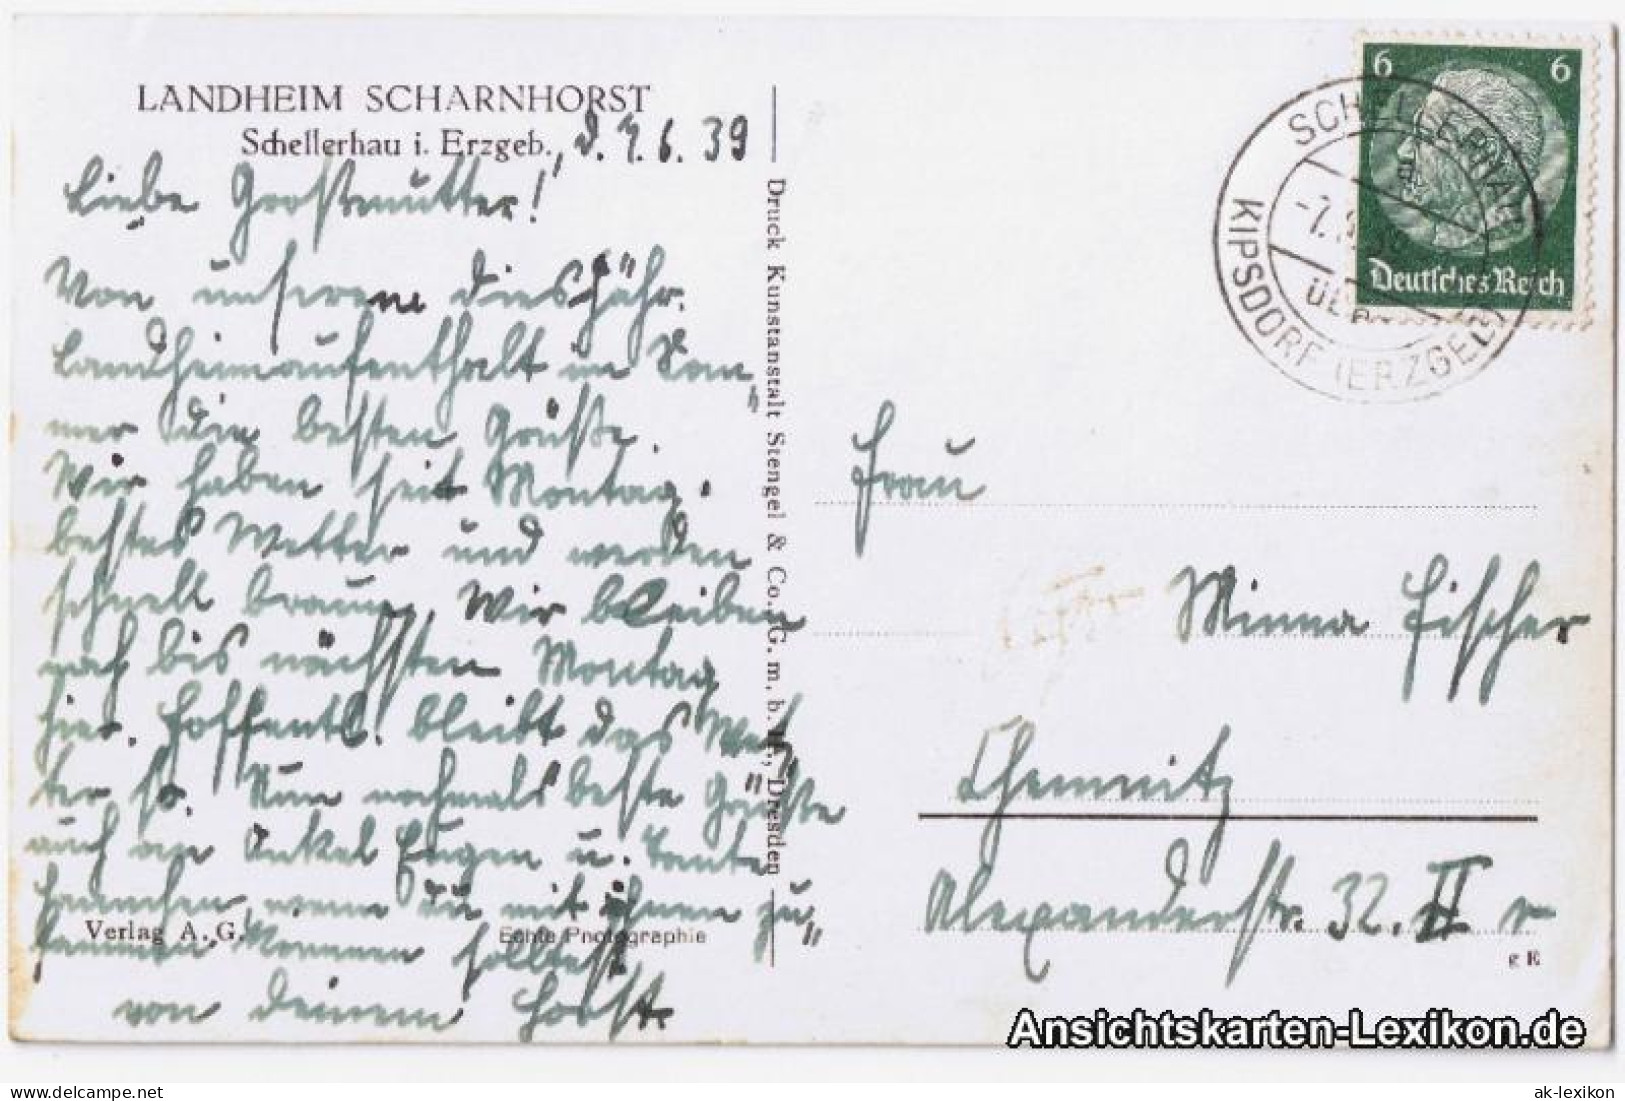 LANDHEIM SCHARNHORST
Schellerhau i. Erzgeb., d. 7.6.39
Liebe Großmutter!
Von unserem diesjähr.
Landheimaufenthalt im Som„
mer die besten Grüße.
Wir haben seit Montag
bestes Wetter und werden
schnell braun. Wir bleiben
noch bis nächsten Montag
hier. Hoffentl. bleibt das Wet„
ter so. Nun nochmals beste Grüße
auch an Onkel Eugen u. Tante
Hannchen, wenn du mit ihnen zu„
sammen kommen solltest
von deinem Horst.
Verlag A. G.
Echte Photographie
Druck Kunstanstalt Stengel & Co., G. m. b. H., Dresden
6 6
Deutsches Reich
SCHELLERHAU
ÜBER
KIPSDORF (ERZGEB)
Frau
Minna Fischer
Chemnitz
Alexanderstr. 32. II r
g E
Ansichtskarten-Lexikon.de
delcampe.net
ak-lexikon